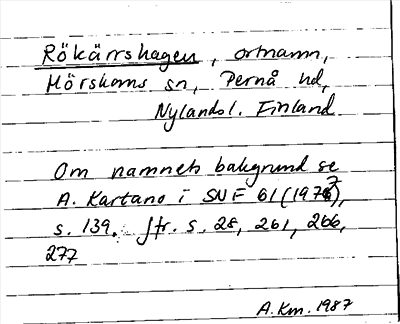 Rökärrshagen, ortnamn,
Mörskoms sn, Pernå hd,
Nylands l. Finland
Om namnets bakgrund se
A. Kartano i SNF 61 (1973),
s. 139. Jfr. s. 28, 261, 266,
277
A.Km. 1987